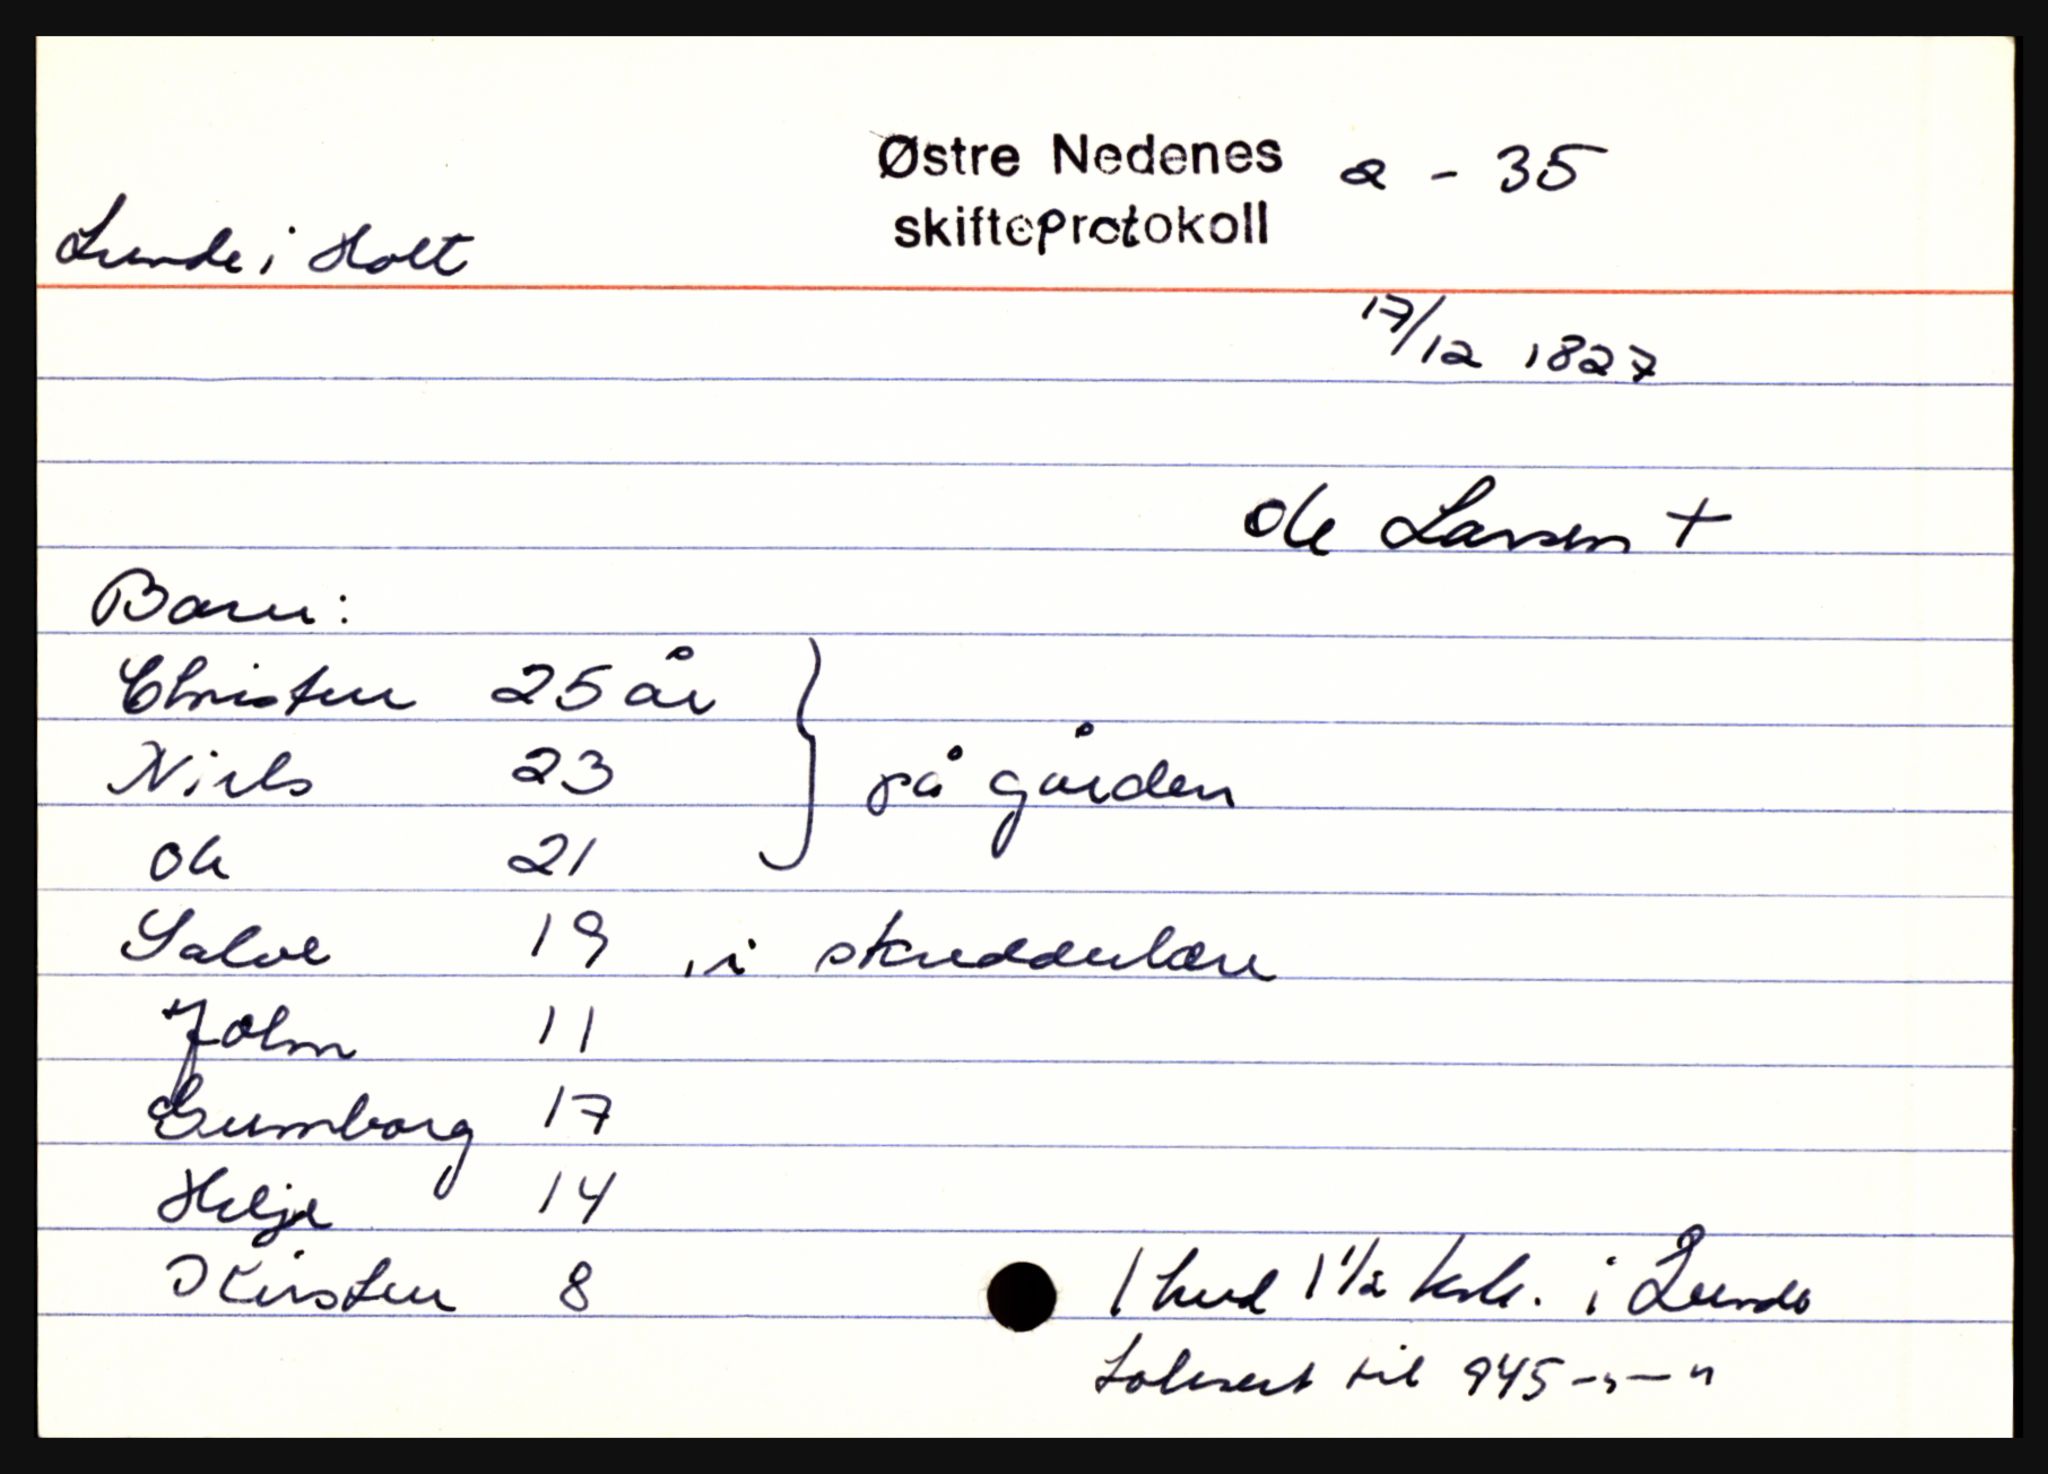 Østre Nedenes a - 35
skifteprotokoll
Lunde i Holt
17/12 1827
Ole Larsen +
Barn:
Christen 25 år
Niels 23
på gården
Ole 21
Salve 19, i skredderlære
John 11
Gumborg 17
Helje 14
Kirsten 8
1 hud 1 1/2 kal. i Lunde
taksert til 945 -"-"